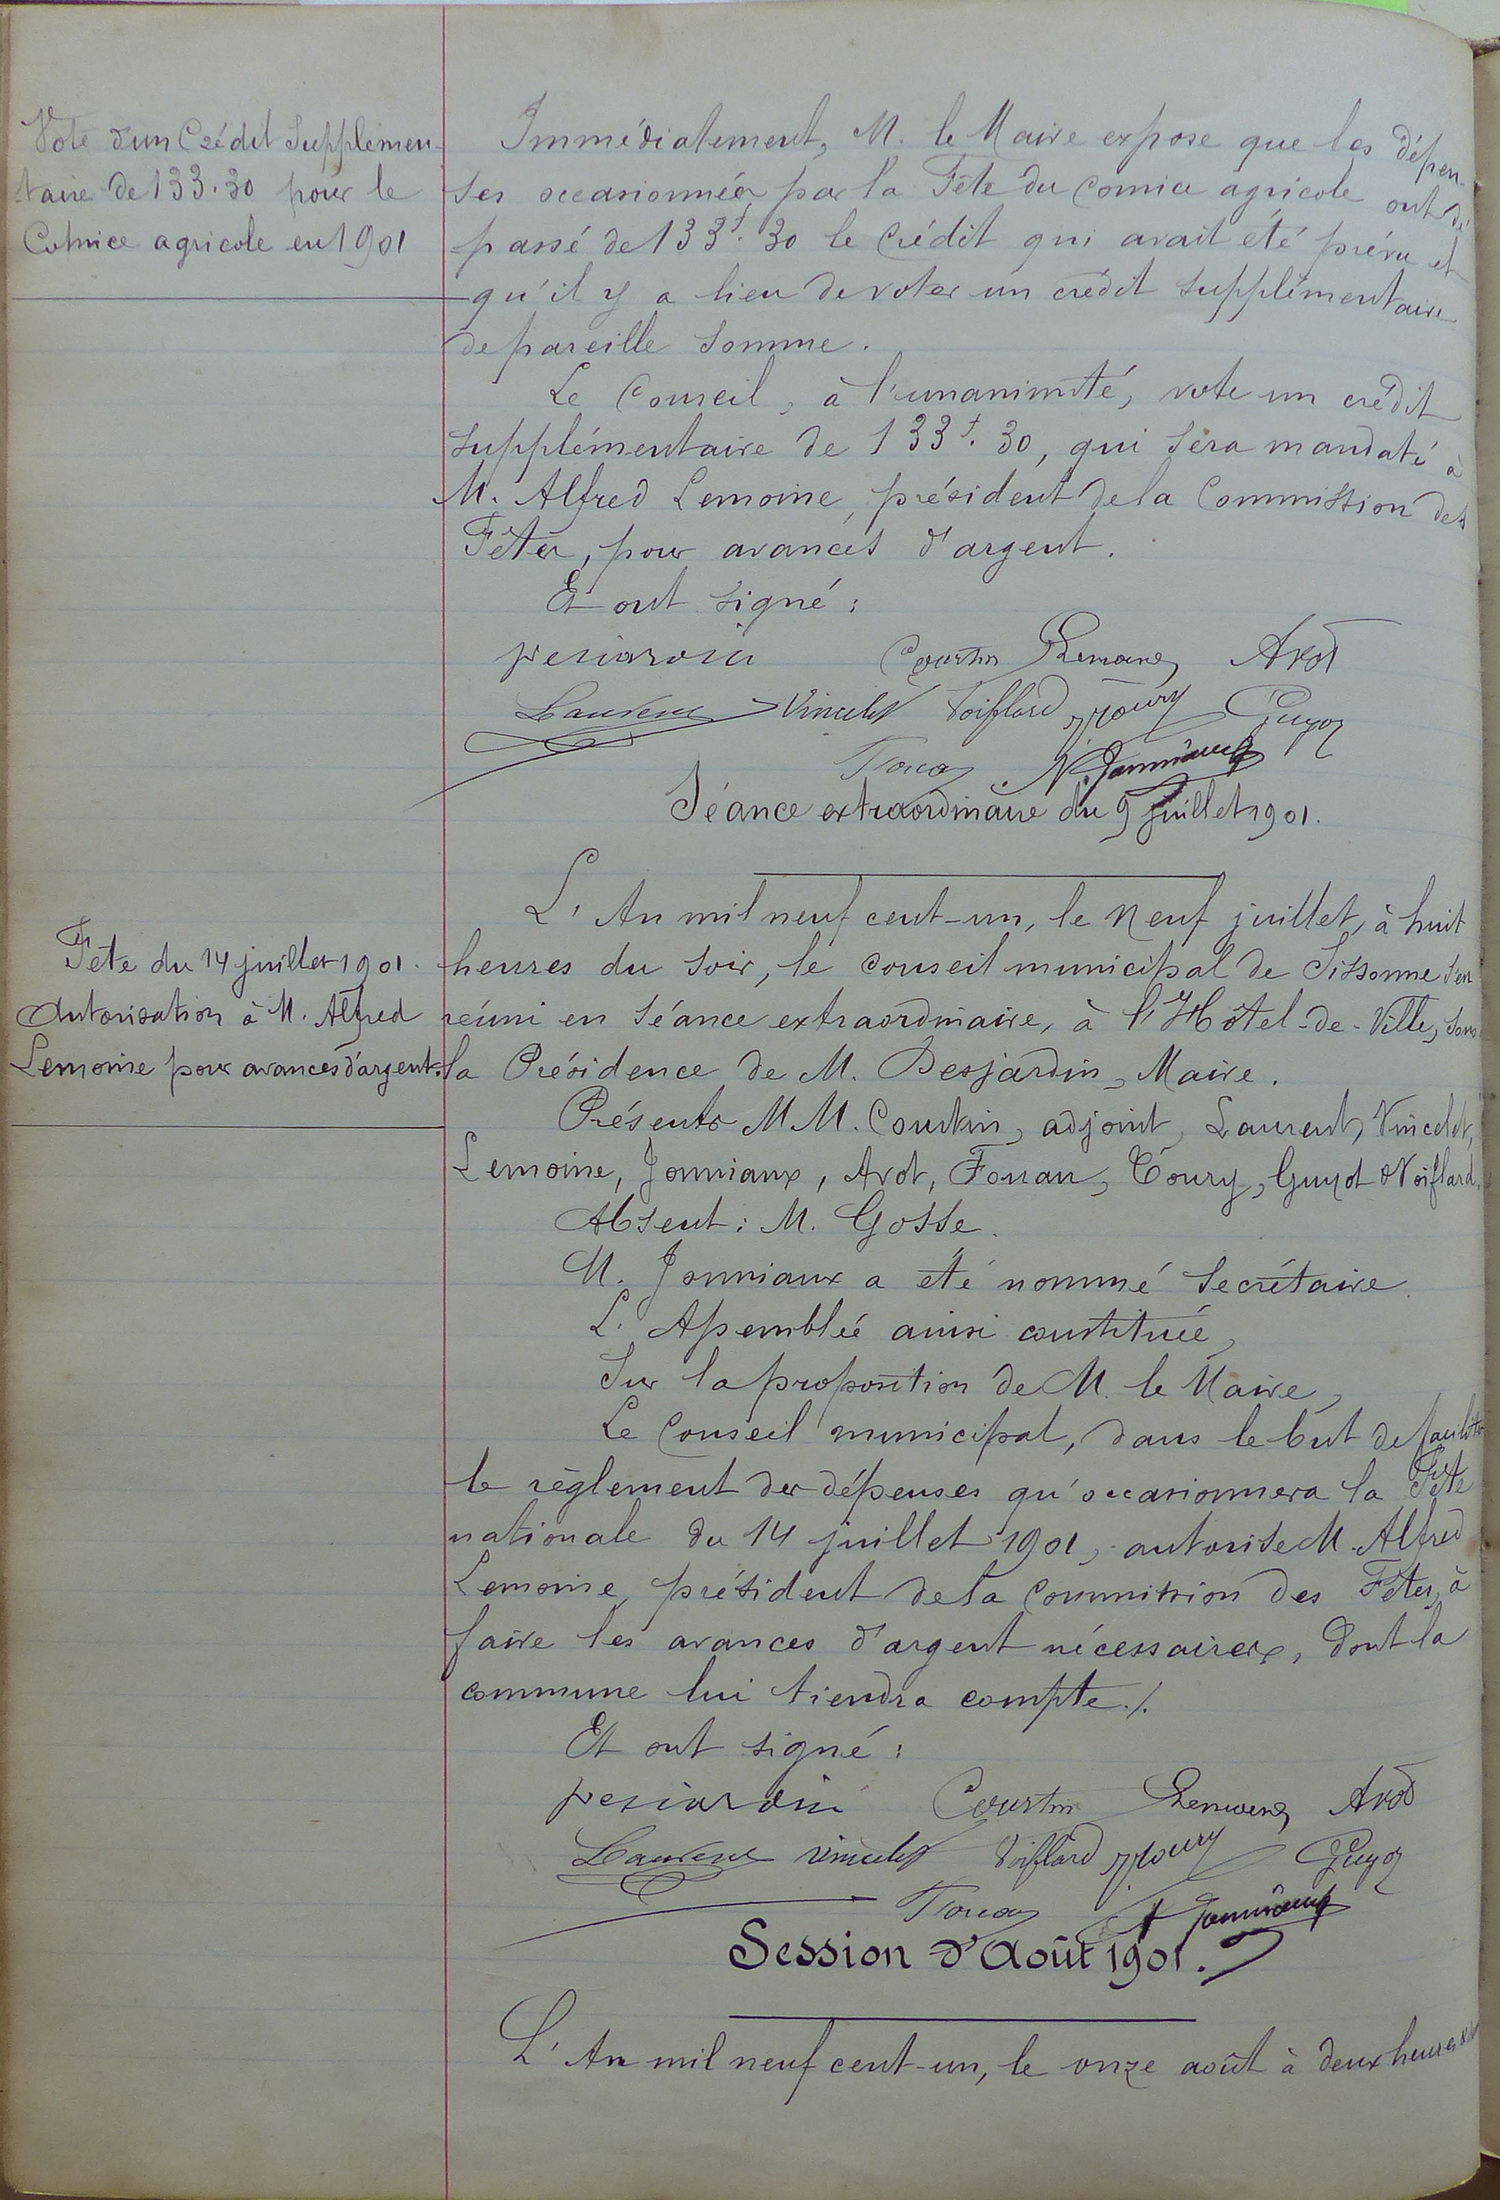 Vote d'un Crédit Supplémen-
taire de 133.30 pour le
Comice agricole en 1901
Immédiatement, M. le Maire expose que les dépen-
ses occasionnées par la Fête du Comice agricole ont dé-
passé de 133f.30 le Crédit qui avait été prévu et
qu'il y a lieu de voter un crédit supplémentaire
de pareille somme.
Le Conseil, à l'unanimité, vote un crédit
supplémentaire de 133f.30, qui sera mandaté à
M. Alfred Lemoine, président de la Commission des
Fêtes, pour avances d'argent.
Et ont signé :
Desjardin Courtin Lemoine Avot
Laurent Vincelet Voiflard Toury Guyot
Fouan N. Jonniaux
Séance extraordinaire du 9 juillet 1901.
Fête du 14 juillet 1901.
Autorisation à M. Alfred
Lemoine pour avances d'argent.
L'An mil neuf cent-un, le neuf juillet, à huit
heures du soir, le Conseil municipal de Sissonne s'est
réuni en séance extraordinaire, à l'Hôtel-de-Ville, sous
la Présidence de M. Desjardin, Maire.
Présents MM. Courtin, adjoint, Laurent, Vincelet,
Lemoine, Jonniaux, Avot, Fouan, Toury, Guyot & Voiflard.
Absent : M. Gosse.
M. Jonniaux a été nommé Secrétaire.
L'Assemblée ainsi constituée,
Sur la proposition de M. le Maire,
Le Conseil municipal, dans le but de faciliter
le règlement des dépenses qu'occasionnera la Fête
nationale du 14 juillet 1901, autorise M. Alfred
Lemoine, président de la Commission des Fêtes, à
faire les avances d'argent nécessaires, dont la
commune lui tiendra compte./.
Et ont signé :
Desjardin Courtin Lemoine Avot
Laurent Vincelet Voiflard Toury Guyot
Fouan Jonniaux
Session d'Août 1901.
L'An mil neuf cent-un, le onze août à deux heures